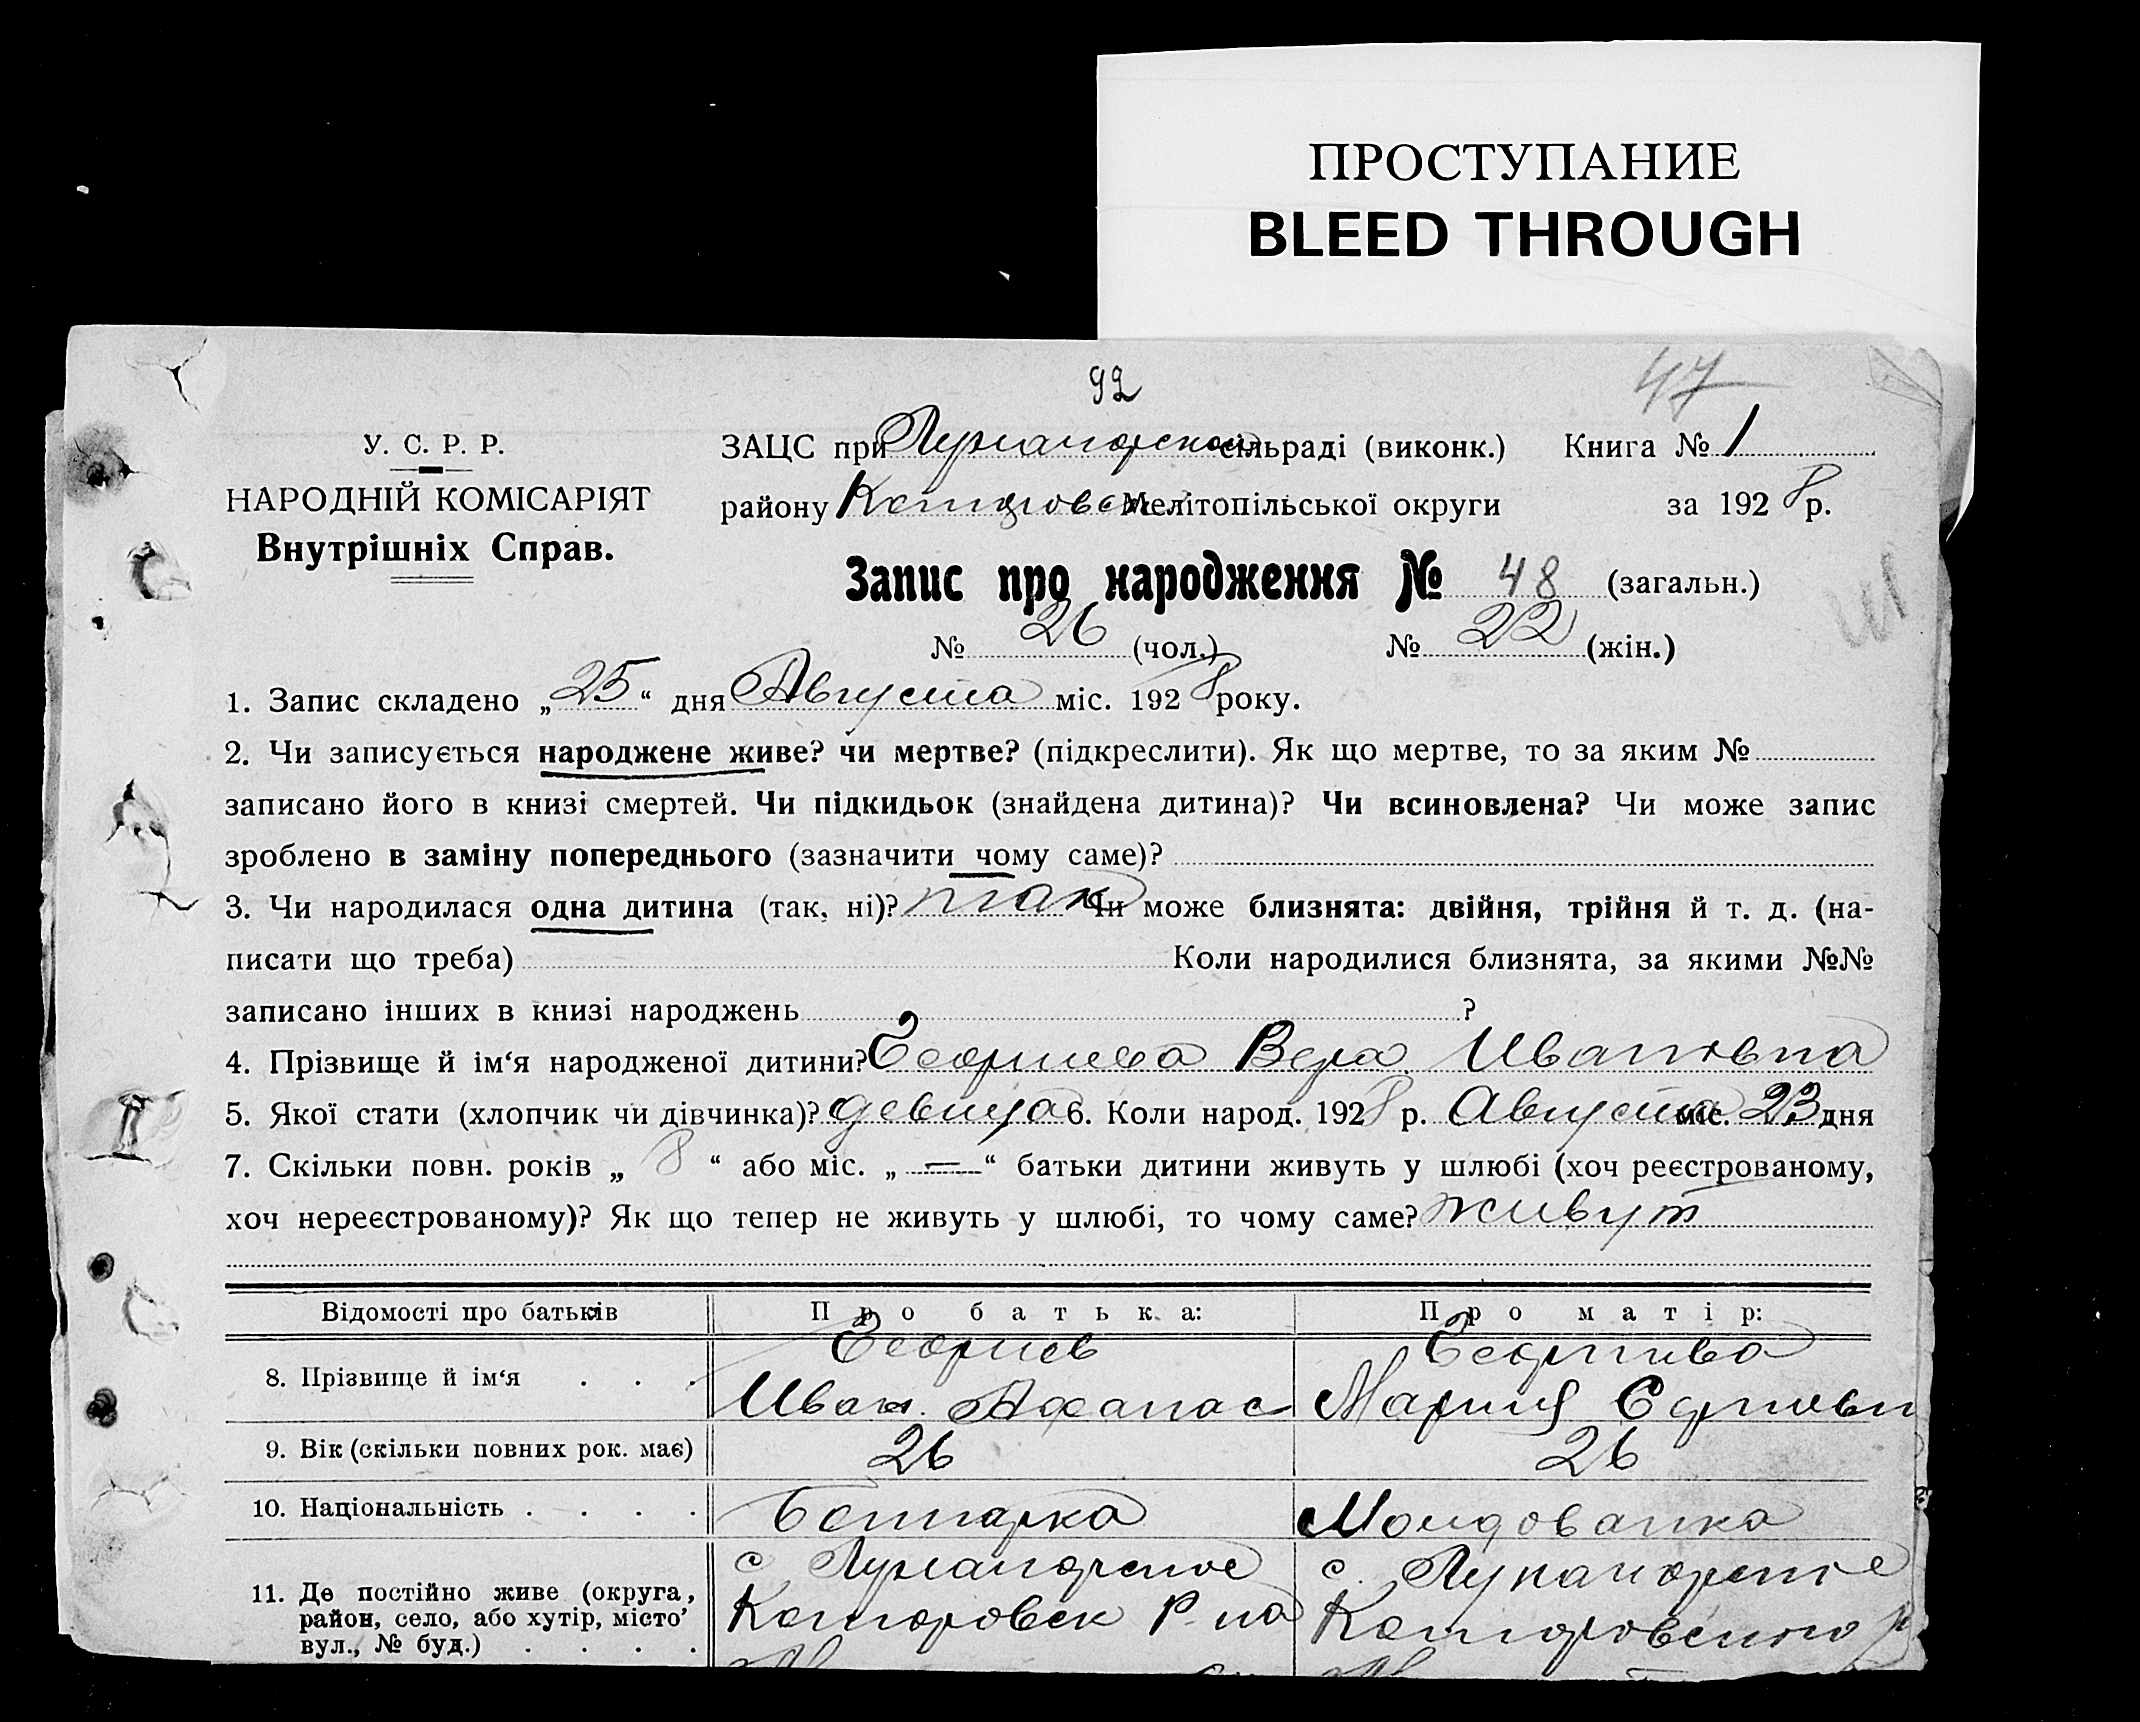 ПРОСТУПАНИЕ
BLEED THROUGH
92
47
У. С. Р. Р.
НАРОДНІЙ КОМІСАРІЯТ
Внутрішніх Справ.
ЗАЦС при сільраді (виконк.) Книга № 1
району Мелітопільської округи за 1928 р.
Запис про народження № 48 (загальн.)
№ 26 (чол.) № 22 (жін.)
1. Запис складено „25“ дня Августа міс. 1928 року.
2. Чи записується народжене живе? чи мертве? (підкреслити). Як що мертве, то за яким №
записано його в книзі смертей. Чи підкидьок (знайдена дитина)? Чи всиновлена? Чи може запис
зроблено в заміну попереднього (зазначити чому саме)?
3. Чи народилася одна дитина (так, ні)? так Чи може близнята: двійня, трійня й т. д. (на-
писати що треба) Коли народилися близнята, за якими №№
записано інших в книзі народжень ?
4. Прізвище й ім‘я народженої дитини? Вера Ивановна
5. Якої стати (хлопчик чи дівчинка)? девица 6. Коли народ. 1928 р. Августа міс. 23 дня
7. Скільки повн. років „8“ або міс. „—“ батьки дитини живуть у шлюбі (хоч реєстрованому,
хоч нереєстрованому)? Як що тепер не живуть у шлюбі, то чому саме? живут
Відомості про батьків Про батька: Про матір:
8. Прізвище й ім‘я . . . Иван. Афанас Мария
9. Вік (скільки повних рок. має) 26 26
10. Національність . . . . Болгарка Молдованка
11. Де постійно живе (округа,
район, село, або хутір, місто
вул., № буд.) . . . .
с с.
Р-на